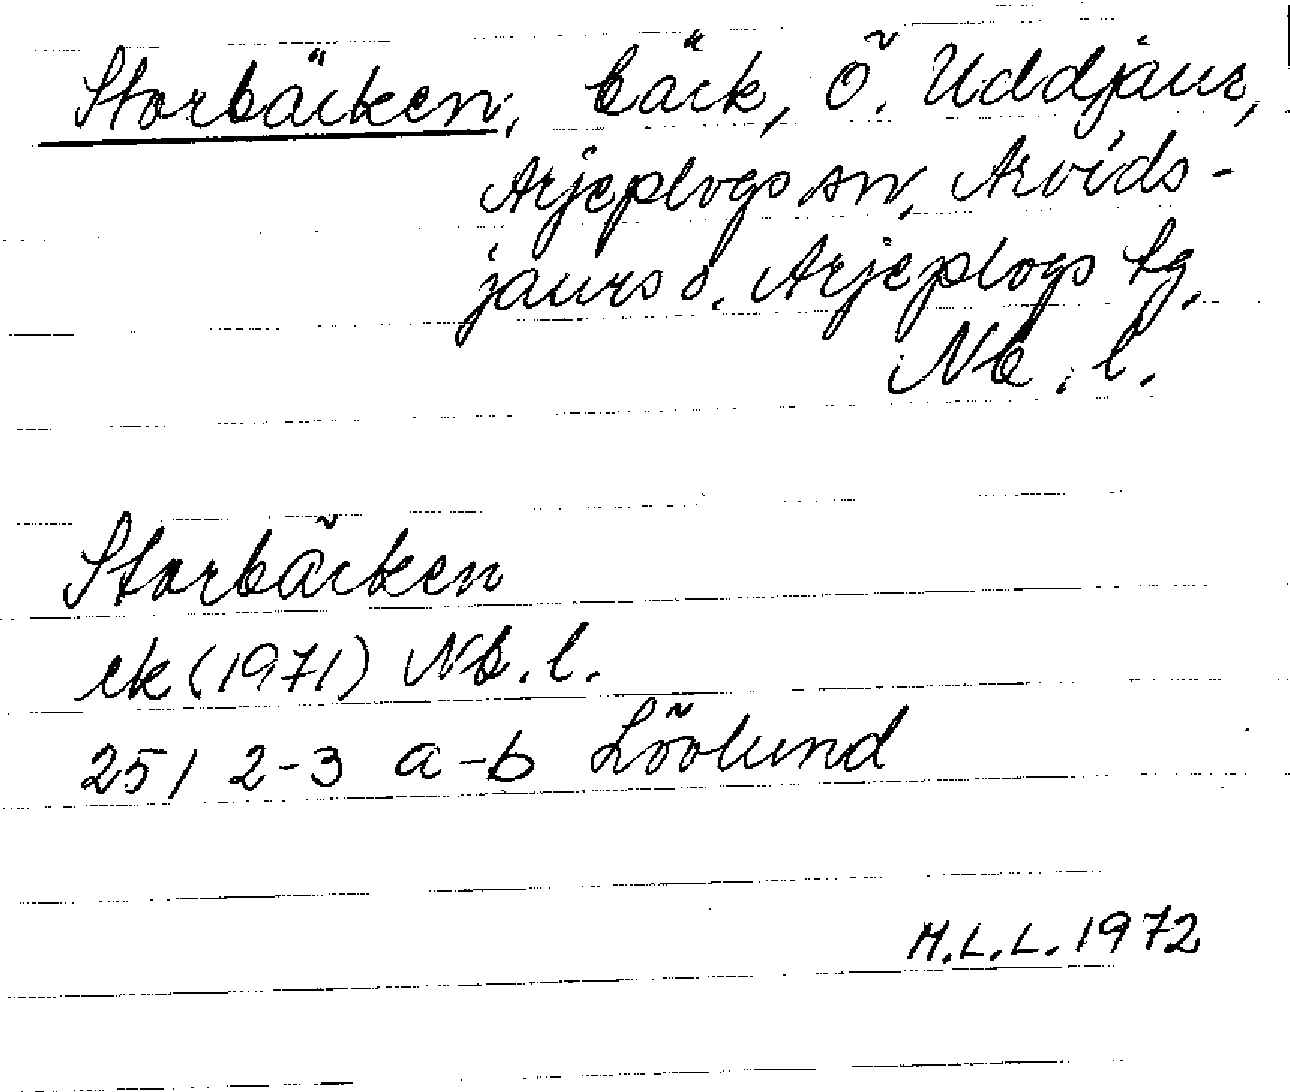 Storbäcken, bäck, Ö. Uddjaur,
Arjeplogs sn, Arvids-
jaurs o. Arjeplogs tg,
Nb. l.
Storbäcken
ek (1971) Nb. l.
25 I 2-3 a-b Lövlund
H.L.L. 1972